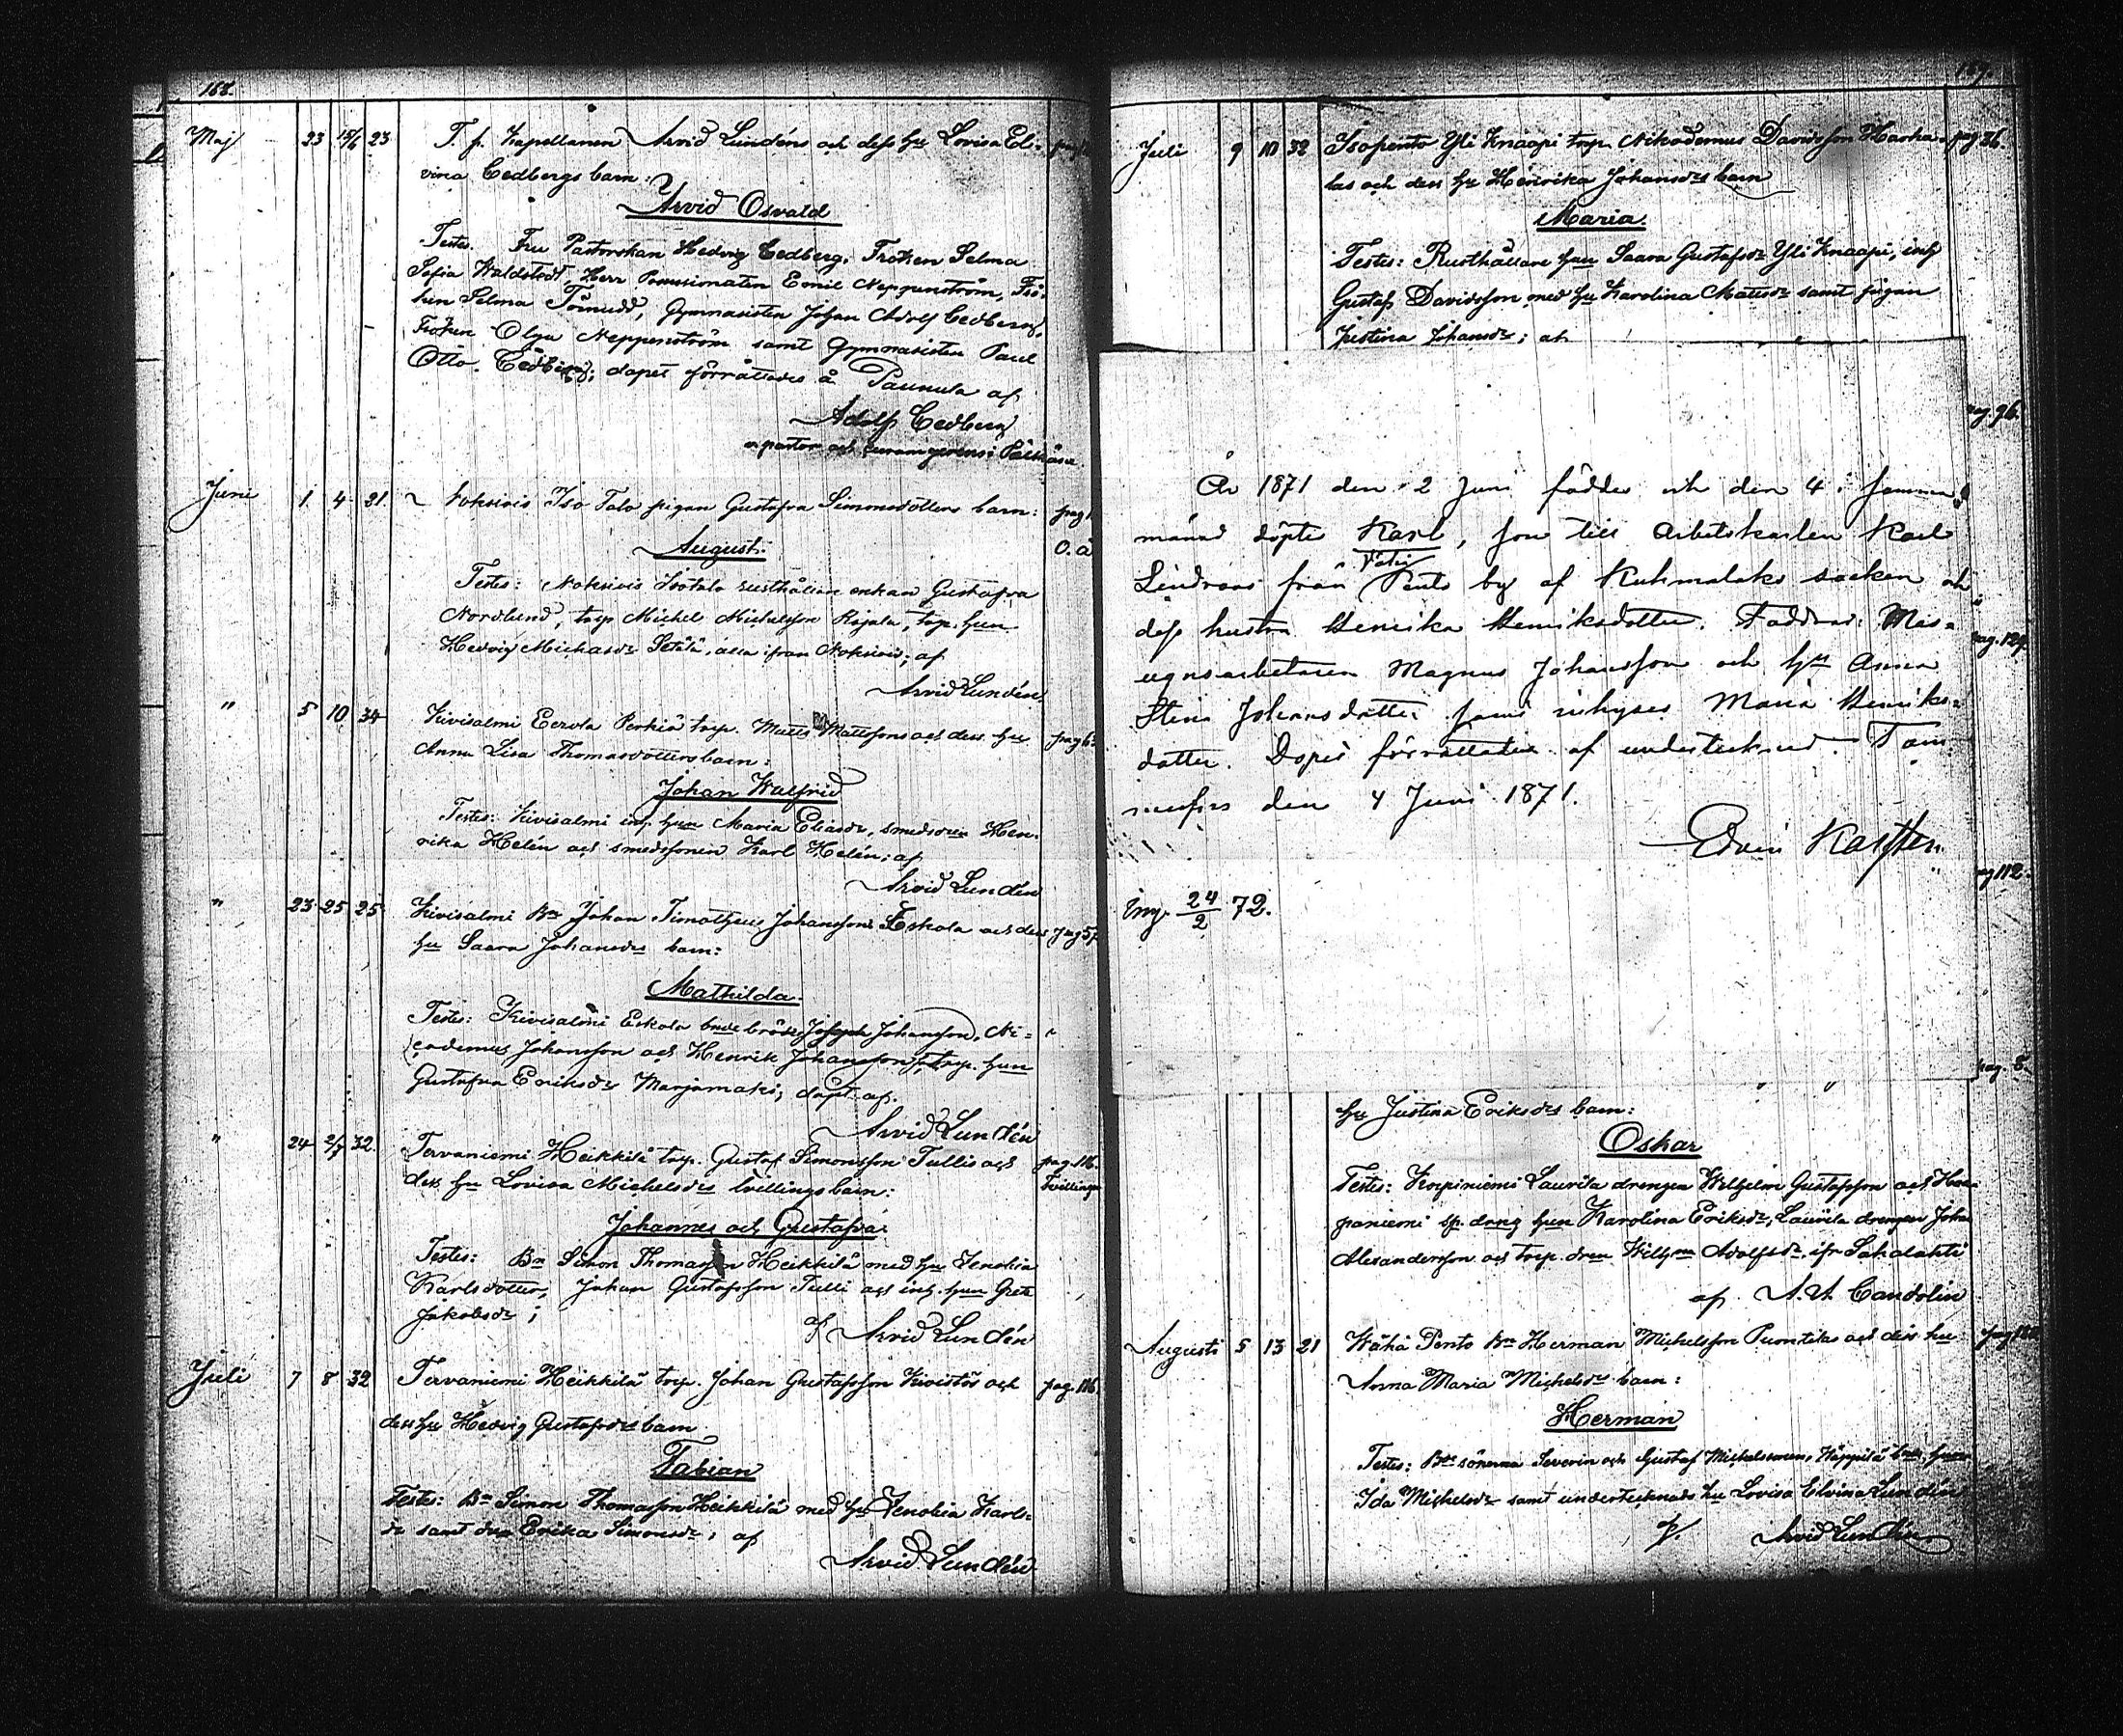 168.
Maj 23 15/6 23 T. f. Kapellanen Arvid Lundéns och dess hu Lovisa El-
vina Cedbergs barn:
Arvid Osvald
Testes. Fru Pastorskan Hedvig Cedberg, Fröken Selma
Sofia Waldstedt, Herr Provisionaten Emil Neppenström, Frö-
ken Selma Törnudd, Gymnasisten Johan Adolf Cedberg,
Fröken Olga Neppenström samt gymnasisten Paul
Otto Cedberg; dopet förrättades å Pannula af
Adolf Cedberg
v. pastor och i Pälkäne
Juni 1 4 21 Nokivis Iso Talo pigan Gustafva Simonsdotters barn: pag
August. O. ä
Testes: Isotalo rusthållare enkan Gustafva
Nordlund, torp Michel Michelsson Rajala, torp. hun
Hedvig Michelsdr Setälä, alla ifrån ; af
Arvid Lundén
" 5 10 34 Kivisalmi Eerola Perkiä torp. Matts Mattssons och dess hu pag 6
Anna Lisa Thomasdotters barn:
Johan Walfrid
Testes: Kivisalmi inh. hun Maria Eliasdr, smedsdren Hen-
rika Helén och smedssonen Karl Helén; af
Arvid Lundén
" 23 25 25 Kivisalmi Bn Johan Timotheus Johanssons Eskola och dess pag 57
hu Saara Johansdrs barn:
Mathilda
Testes: Kivisalmi Eskola bröder Joseph Johansson, Ni-
codemus Johansson och Henrik Johansson, torp. hun
Gustafva Eriksdr Marjamäki; döpt af
Arvid Lundén
" 24 2/7 32. Tervaniemi Heikkilä torp. Gustaf Simonsson Tullis och pag. 116.
dess hu Lovisa Michelsdrs tvillingsbarn: Tvillingar
Johannes och Gustafva
Testes: Bn Simon Thomasson Heikkilä med hu Venobia
Karlsdotter, Johan Gustafsson Tulli och inh. hun Greta
Jakobsdr;
af Arvid Lundén
Juli 7 8 32 Tervaniemi Heikkilä torp. Johan Gustafsson Kivistös och pag. 116
dess hu Hedvig Gustafsdrs barn
Fabian
Testes: Bn Simon Thomasson Heikkilä med hu Venobia Karls-
dr samt drn Erika Simonsdr; af
Arvid Lundén
169.
Juli 9 10 32 Isopento Yli Knaapi torp. Nikodemus Davidsson Harha- pag 36.
las och dess hu Henrika Johansdrs barn
Maria.
Testes: Rusthållare hun Saara Gustafsdr Yli Knaapi, inh
Gustaf Davidsson med hu Karolina Matsdr samt pigan
Justina Johansdr; af
pag. 96.
År 1871 den 2 Juni föddes och den 4 i samma
månad döptes Karl, son till Arbetskarlen Karl
Lindroos från Pento by af Kuhmalaks socken och
dess hustru Henrika Henriksdotter. Faddrar: Mas-
ugnsarbetaren Magnus Johansson och hu Anna
pag. 129
Stina Johansdotter samt inhyses Maria Henriks-
dotter. Dopet förrättades af undertecknad. Tam-
merfors den 4 Juni 1871.
Edvin Karsten
pag 112.
Ing. 24/2 72.
pag. 8.
hu Justina Eriksdrs barn:
Oskar
Testes: Korpiniemi Laurila drengen Wilhelm Gustafsson och Haa-
paniemi sp. dreng hun Karolina Eriksdr, Laurila drengen Johan
Alexandersson och torp. dren Wilhma Adolfsdr ifr Sahalahti
af A. A. Candolin
Augusti 5 13 21 Wähä Pento Bn Herman Michelsson Puontiks och dess hu
Anna Maria Michelsdrs barn:
Herman
Testes: Bde sönerna Severin och Gustaf Michelssöner, Häppilä
Ida Michelsdr samt undertecknads hu Lovisa Elvina Lundén
af Arvid Lundén